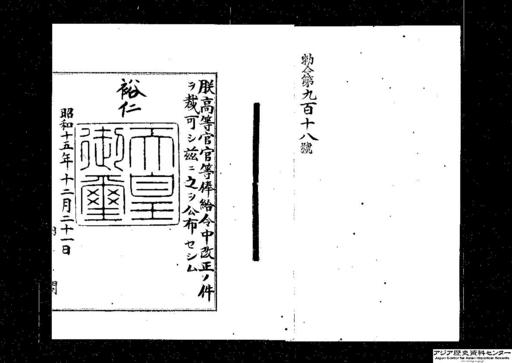 勅令第九百十八號
朕高等官官等俸給令中改正ノ件
ヲ裁可シ茲ニ之ヲ公布セシム
裕仁
天皇
御璽
昭和十五年十二月二十一日
アジア歴史資料センター
Japan Center for Asian Historical Records